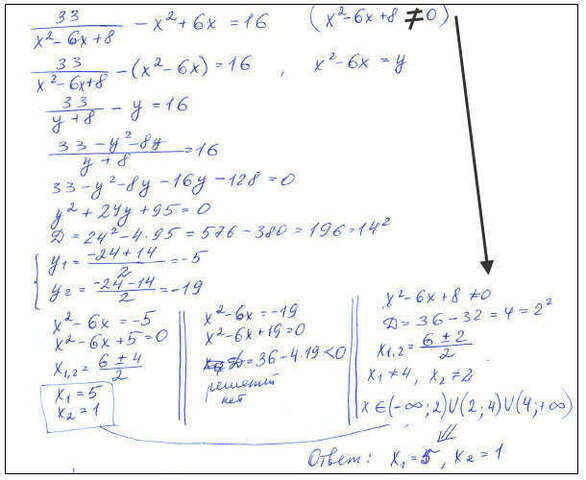 33/(x²-6x+8) - x²+6x = 16 (x²-6x+8 ≠ 0)
33/(x²-6x+8) - (x²-6x) = 16 , x²-6x = y
33/(y+8) - y = 16
(33-y²-8y)/(y+8) = 16
33-y²-8y-16y-128=0
y²+24y+95=0
Д=24²-4·95=576-380=196=14²
y₁ = (-24+14)/2 = -5
y₂ = (-24-14)/2 = -19
x²-6x=-5
x²-6x+5=0
x₁,₂ = (6±4)/2
x₁=5
x₂=1
x²-6x=-19
x²-6x+19=0
Д=36-4·19<0
решений
нет
x²-6x+8≠0
Д=36-32=4=2²
x₁,₂ = (6±2)/2
x₁≠4, x₂≠2
x∈(-∞;2)∪(2;4)∪(4;+∞)
Ответ: x₁=5, x₂=1